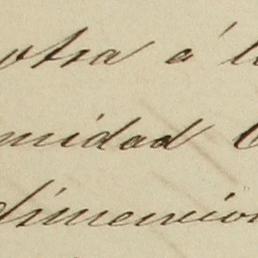 otra á l
midad
dimension